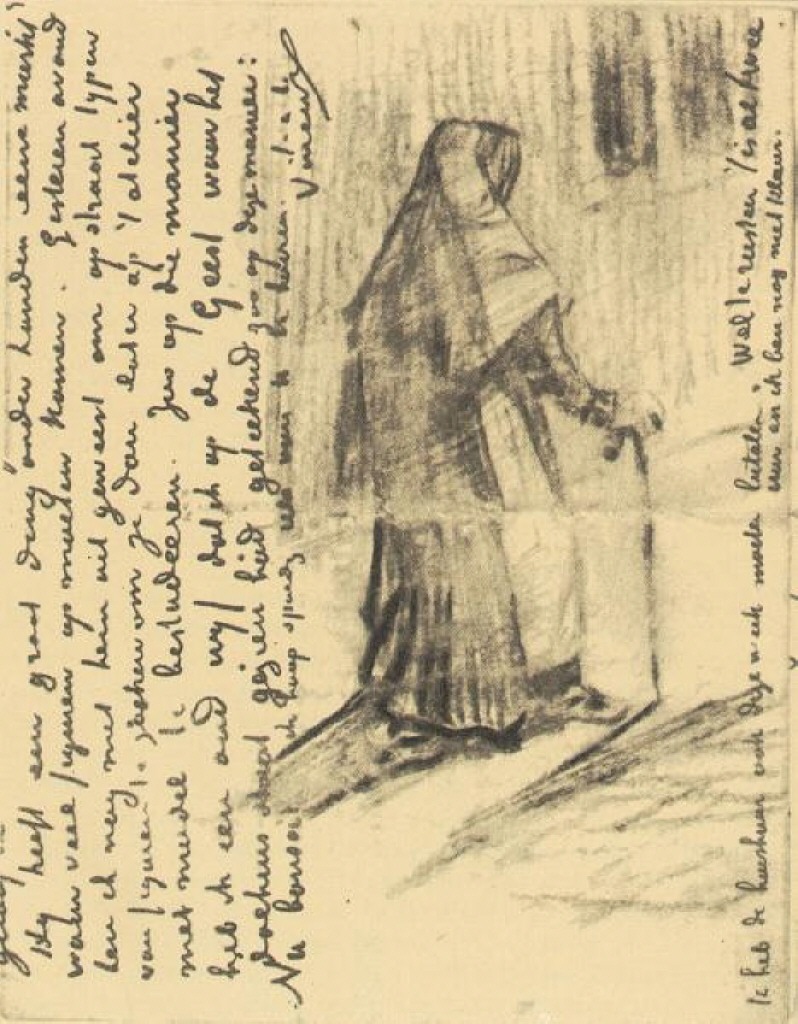 Hij heeft een groot ding onder handen eene markt
waar veel figuren op moeten komen. Gisteren avond
ben ik nog met hem uit geweest om op straat typen
van figuren te zoeken om ze dan later op 't atelier
met model te bestudeeren. Zoo op die manier
heb ik een oud wijf dat ik op de Geest waar het
dolhuis staat gezien heb geteekend zoo op deze manier:
Nu bonsoir ik hoop spoedig iets van u te hooren. t. à t.
Vincent
ik heb de huishuur ook deze week moeten betalen. Wel te rusten 't is al twee
uur en ik ben nog niet klaar.